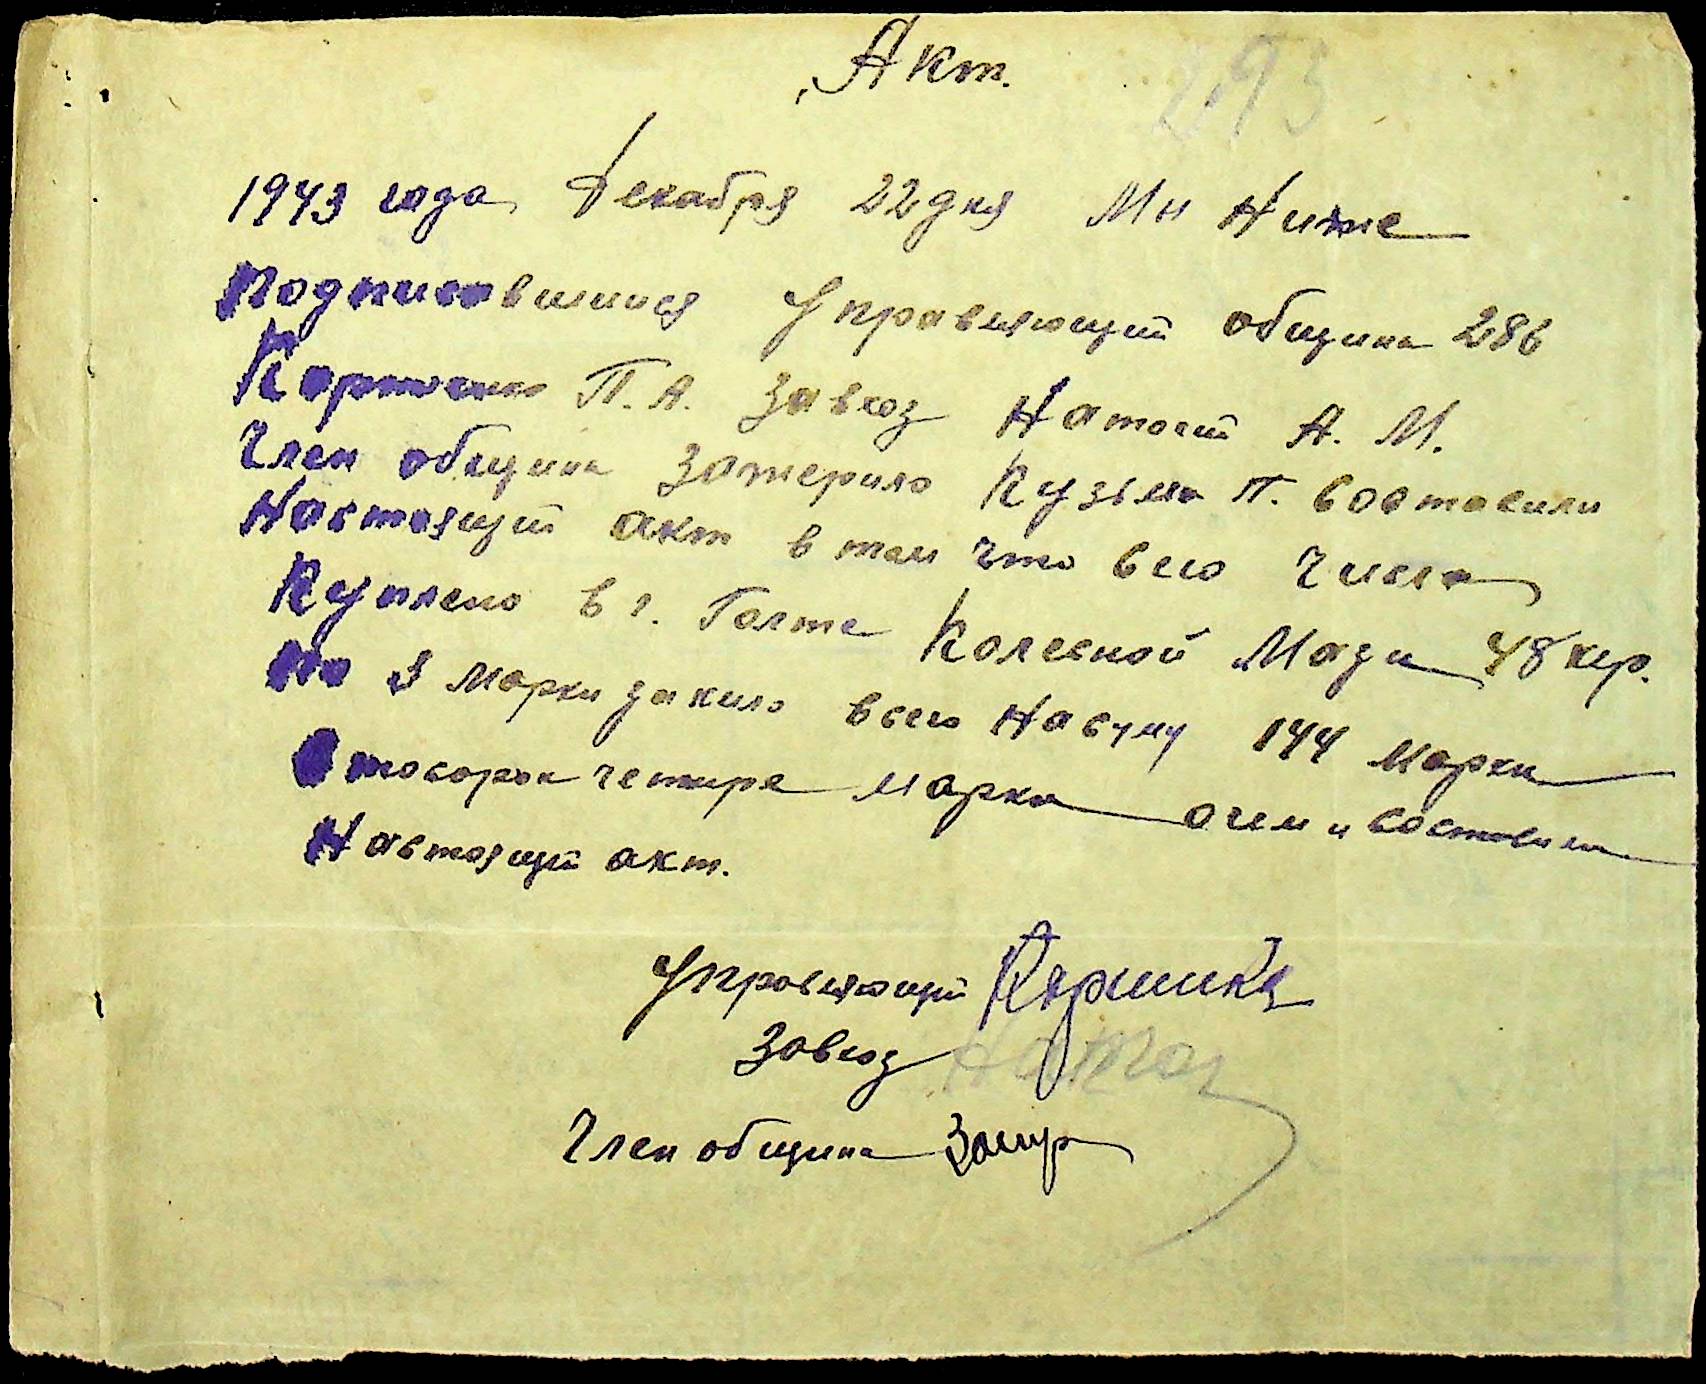 Акт.
293
1943 года Декабря 22 дня Мы Ниже
Подписавшиися Управляющий община 286
П. А. Завхоз Натосий А. М.
Член общины Зажерило Кузьма П. Составили
Настоящий акт в том что всего числа
Куплено в г. Голте Колесной Мази 48 кгр.
По 3 Марки за кило всего На суму 144 Марки
Стосорок четыре марки очем и составили
Настоящий акт.
Управляющий
Завхоз
Член общины